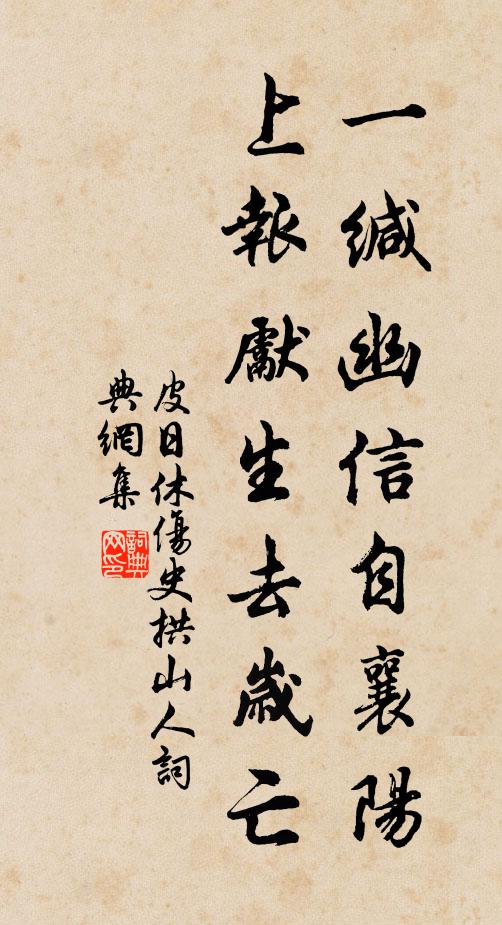 一緘幽信自襄陽
上報獻生去歲亡
皮日休傷史拱山人詞
典網集
詞典網印